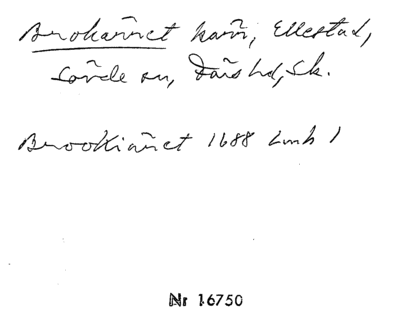 Brokärret kärr, Ellestad,
Sövde sn, Färs hd, Sk.
Brookiäret 1688 Lmh 1
Nr 16750